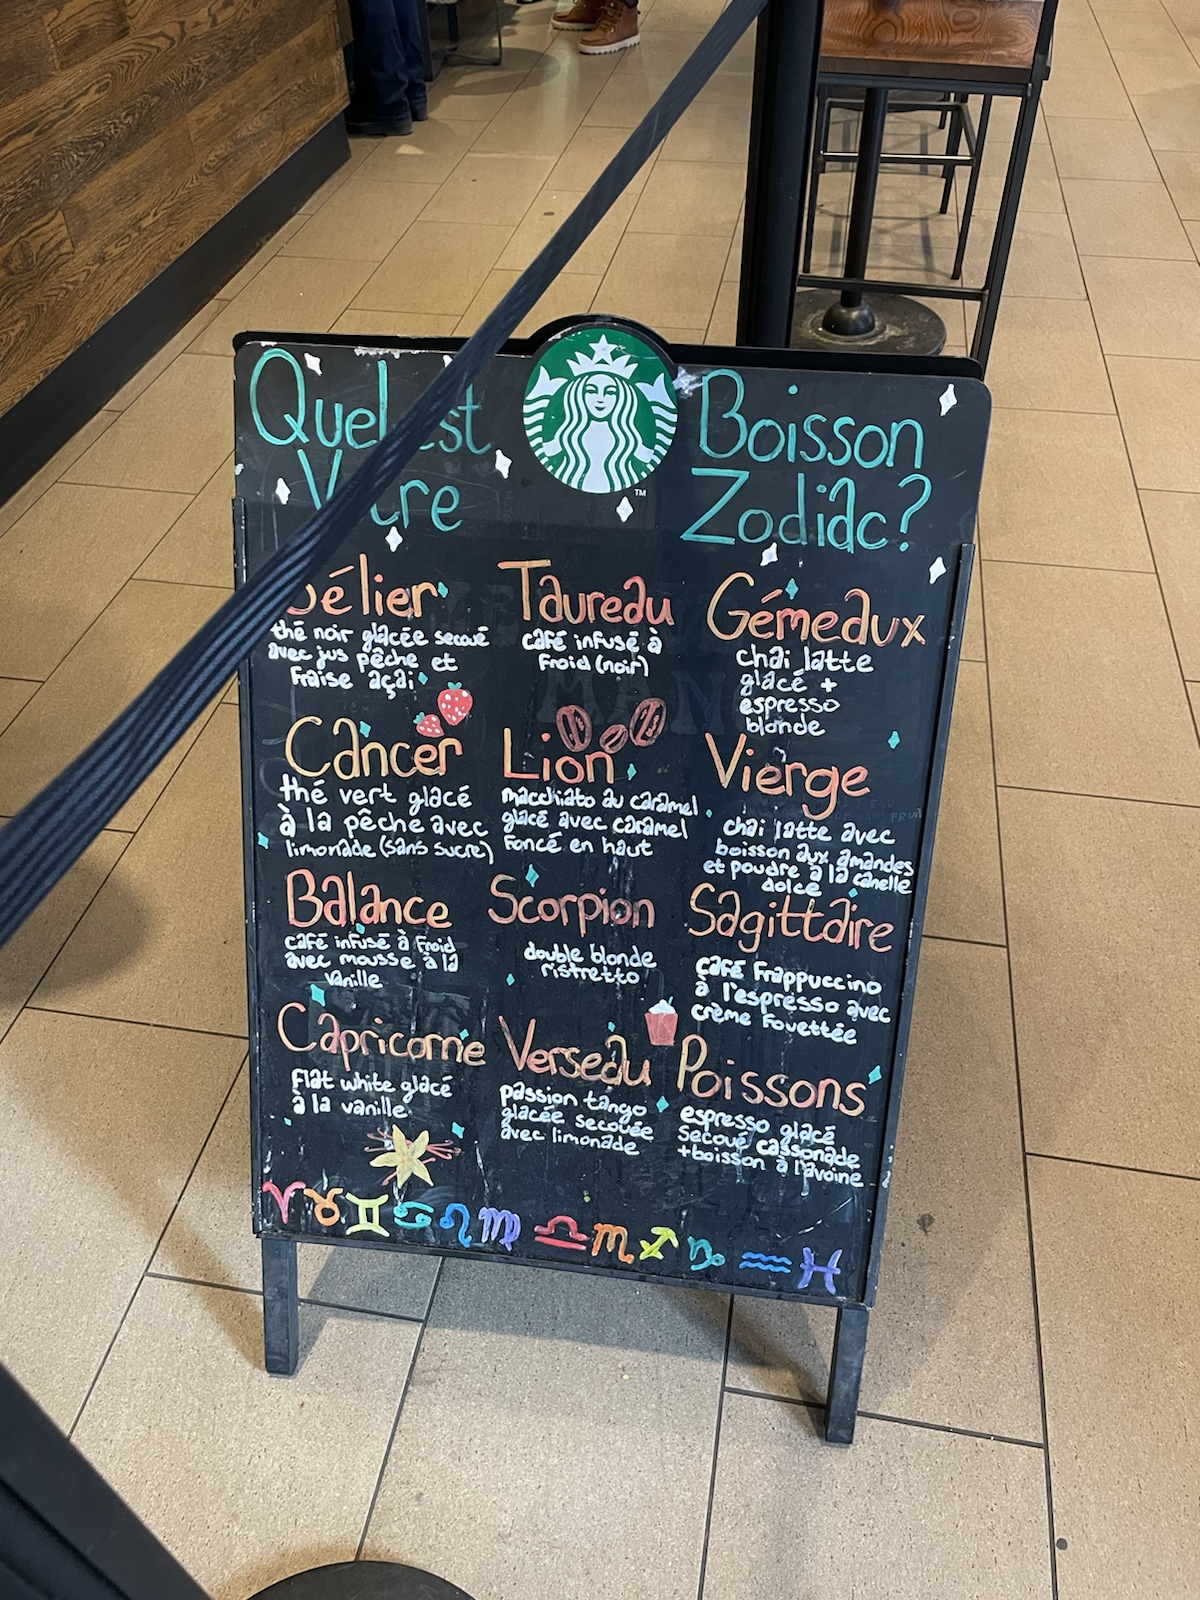 Quel est
Boisson
Zodiac?
Bélier
thé noir glacée secoué
avec jus pêche et
Fraise açaí
Taureau
café infusé à
Froid (noir)
Gémeaux
chai latte
glacé +
espresso
blonde
Cancer
thé vert glacé
à la pêche avec
limonade (sans sucre)
Lion
macchiato au caramel
glacé avec caramel
Foncé en haut
Vierge
chai latte avec
boisson aux amandes
et poudre à la canelle
dolce
Balance
café infusé à Froid
avec mousse à la
vanille
Scorpion
double blonde
ristretto
Sagittaire
café Frappuccino
à l'espresso avec
crème Fouettée
Capricorne
Flat white glacé
à la vanille
Verseau
passion tango
glacée secouée
avec limonade
Poissons
espresso glacé
secoué cassonade
+boisson à l'avoine
♈♉♊♋♌♍♎♏♐♑♒♓
TM